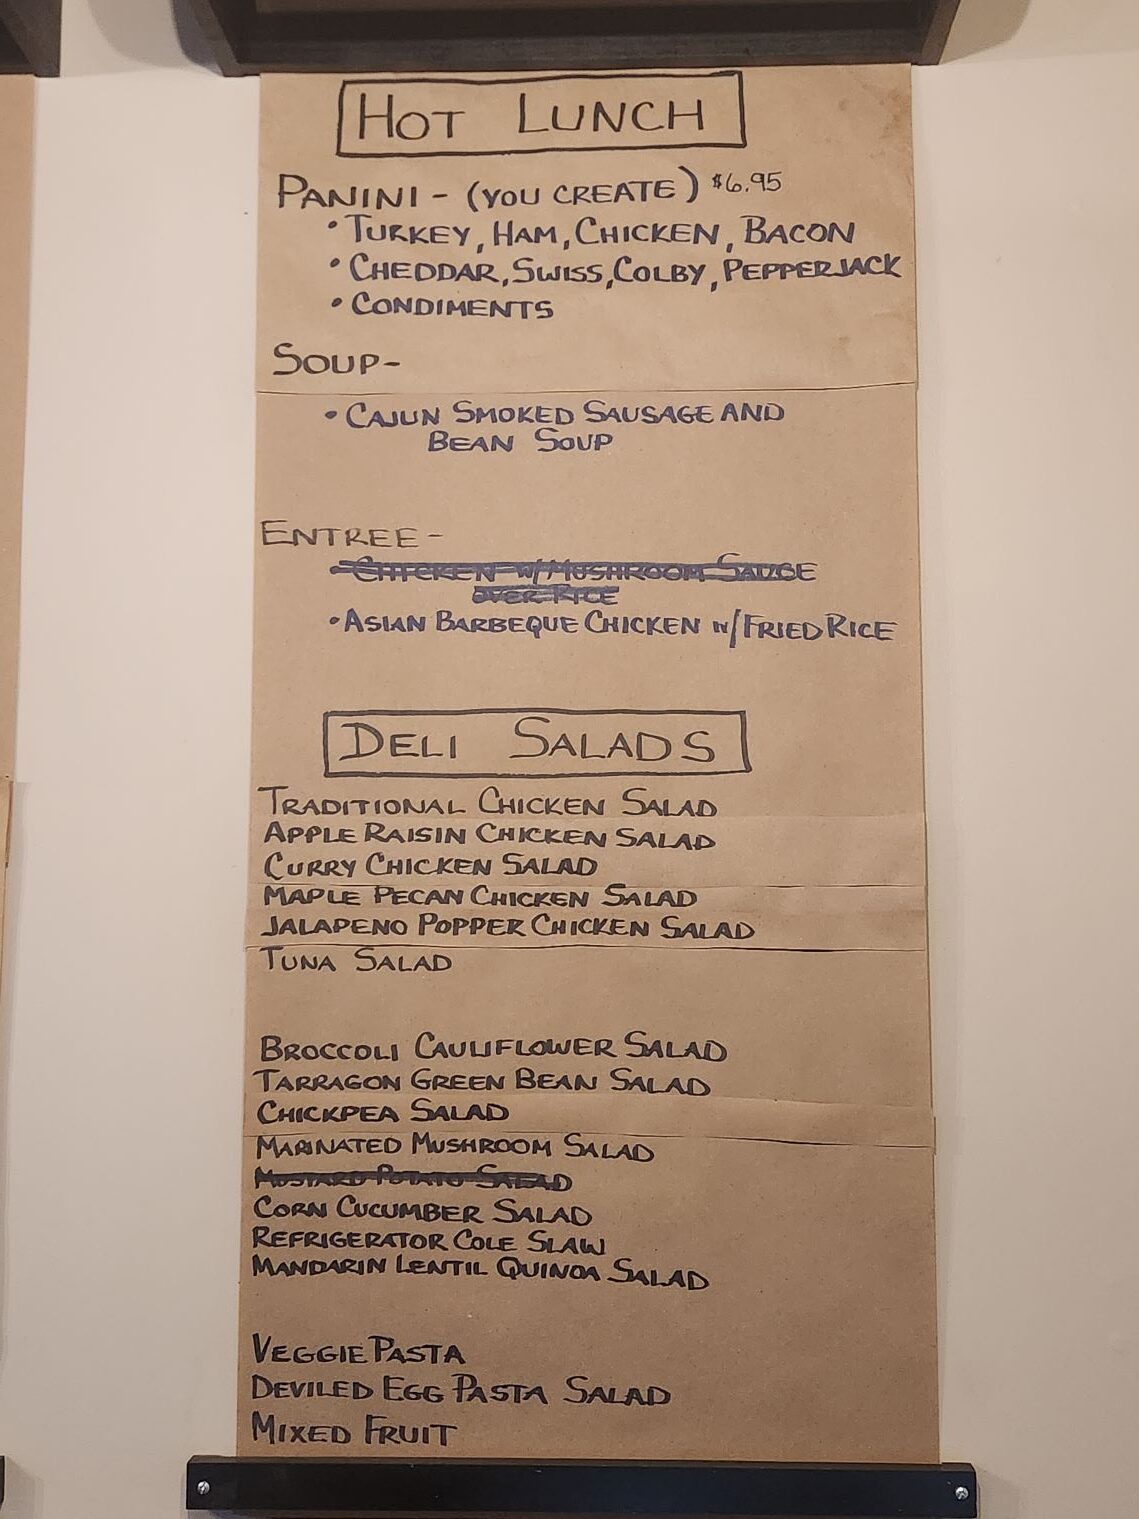 HOT LUNCH
PANINI - (YOU CREATE) $6.95
• TURKEY, HAM, CHICKEN, BACON
• CHEDDAR, SWISS, COLBY, PEPPERJACK
• CONDIMENTS
SOUP-
• CAJUN SMOKED SAUSAGE AND
BEAN SOUP
ENTREE -
• CHICKEN W/MUSHROOM SAUCE
OVER RICE
• ASIAN BARBEQUE CHICKEN W/FRIED RICE
DELI SALADS
TRADITIONAL CHICKEN SALAD
APPLE RAISIN CHICKEN SALAD
CURRY CHICKEN SALAD
MAPLE PECAN CHICKEN SALAD
JALAPENO POPPER CHICKEN SALAD
TUNA SALAD
BROCCOLI CAULIFLOWER SALAD
TARRAGON GREEN BEAN SALAD
CHICKPEA SALAD
MARINATED MUSHROOM SALAD
MUSTARD POTATO SALAD
CORN CUCUMBER SALAD
REFRIGERATOR COLE SLAW
MANDARIN LENTIL QUINOA SALAD
VEGGIE PASTA
DEVILED EGG PASTA SALAD
MIXED FRUIT